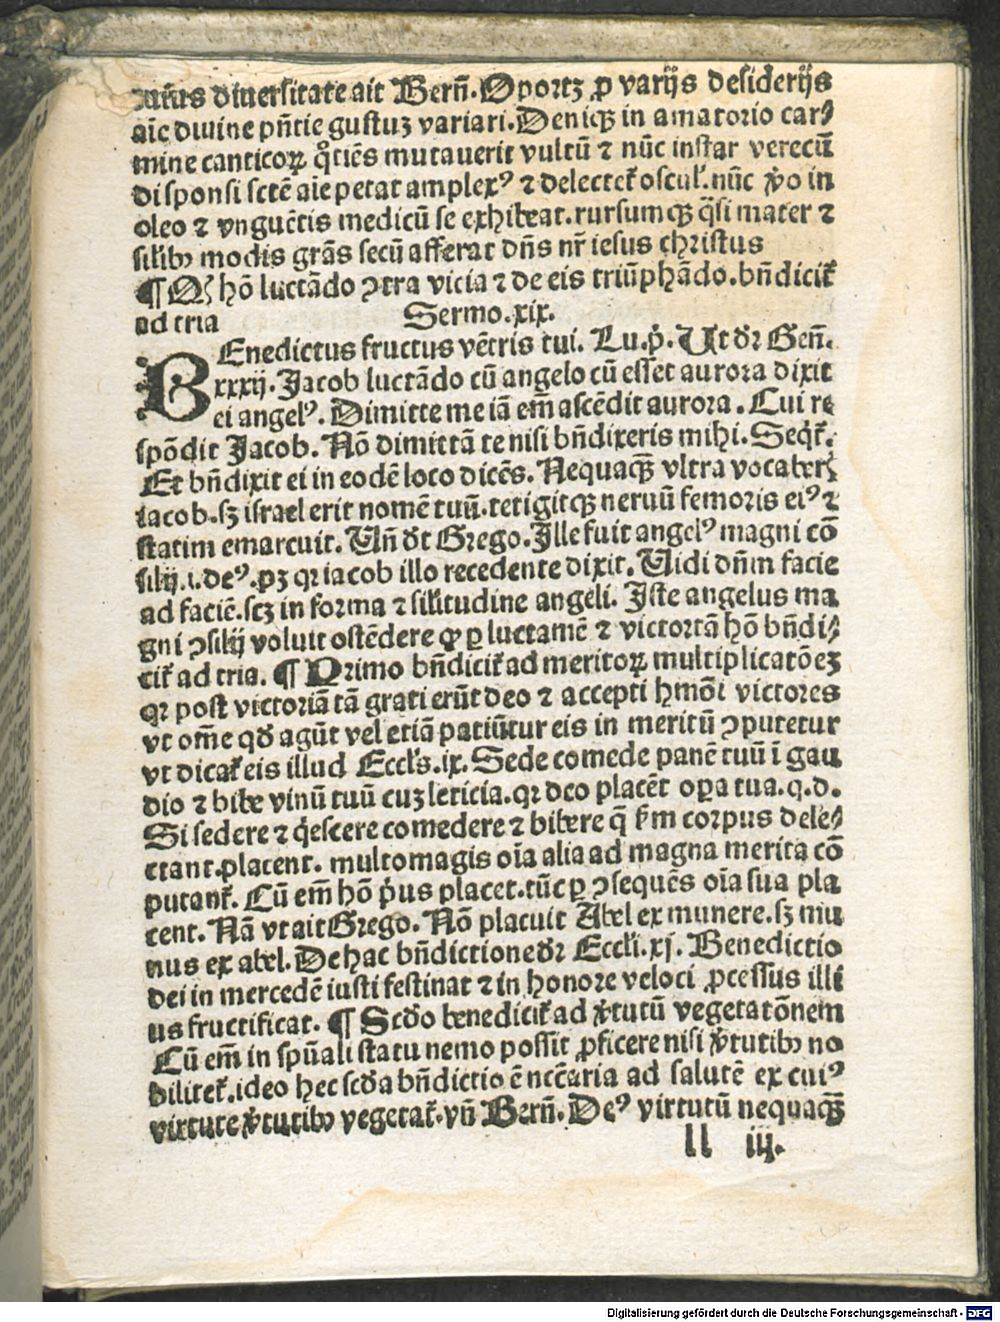 diuersitate ait Bern̄. Oportꝫ ꝓ varijs desiderijs
aīe diuine pn̄tie gustuꝫ variari. Deniqꝫ in amatorio car⸗
mine canticoꝝ q̊tiēs mutauerit vultū ⁊ nūc instar verecū
di sponsi sctē aīe petat amplexꝰ ⁊ delectet᷑ oscul᷑. nūc ꝟo in
oleo ⁊ vnguētis medicū se exhibeat. rursumqꝫ q̄si mater ⁊
sil̓ibꝫ modis grās secū afferat dn̄s nr̄ iesus christus
¶ Qꝫ hō luctādo ꝯtra vicia ⁊ de eis triūphādo. bn̄dicit᷑
ad tria Sermo. xix.
BEnedictus fructus vētris tui. Lu. p̓. Ut dr̄ Gen̄.
xxxij. Jacob luctādo cū angelo cū esset aurora dixit
ei angelꝰ. Dimitte me iā em̄ ascēdit aurora. Cui re
spōdit Jacob. Nō dimittā te nisi bn̄dixeris mihi. Seqt᷑.
Et bn̄dixit ei in eodē loco dicēs. Nequaqꝫ̄ vltra vocaber⸗
iacob. sꝫ israel erit nomē tuū. tetigitqꝫ neruū femoris eiꝰ ⁊
statim emarcuit. Un̄ dt̄ Grego. Jlle fuit angelꝰ magni cō
silij .i. deꝰ. pꝫ qꝛ iacob illo recedente dixit. Uidi dn̄m facie
ad faciē. scꝫ in forma ⁊ sil̓itudine angeli. Jste angelus ma
gni ꝯsilij voluit ostēdere ꝙ ꝑ luctamē ⁊ victoriā hō bn̄di⸗
cit᷑ ad tria. ¶ Primo bn̄dicit᷑ ad meritoꝝ multiplicatōeꝫ
qꝛ post victoriā tā grati erūt deo ⁊ accepti hmōi victores
vt om̄e qd̄ agūt vel etiā patiūtur eis in meritū ꝯputetur
vt dicat᷑ eis illud Eccl̓s. ix. Sede comede panē tuū ī gau
dio ⁊ bibe vinū tuū cuꝫ leticia. qꝛ deo placēt oꝑa tua. q. d.
Si sedere ⁊ qͥescere comedere ⁊ bibere q̄ ẜm corpus dele⸗
ctant. placent. multomagis oīa alia ad magna merita cō
putant᷑. Cū em̄ hō pͥus placet. tūc ꝑ ꝯsequēs oīa sua pla
cent. Nā vt ait Grego. Nō placuit Abel ex munere. sꝫ mu
nus ex abel. De hac bn̄dictione dr̄ Eccl̓i. xj. Benedictio
dei in mercedē iusti festinat ⁊ in honore veloci ꝓcessus illi
us fructificat. ¶ Scd̓o benedicit᷑ ad ꝟtutū vegetatōnem
Cū em̄ in spūali statu nemo possit ꝓficere nisi ꝟtutibꝫ no
bilitet᷑. ideo hec scd̓a bn̄dictio ē nccāria ad salutē ex cuiꝰ
virtute ꝟtutibꝫ vegetat᷑. vn̄ Bern̄. Deꝰ virtutū nequaqꝫ̄
ll iij.
Digitalisierung gefördert durch die Deutsche Forschungsgemeinschaft - DFG